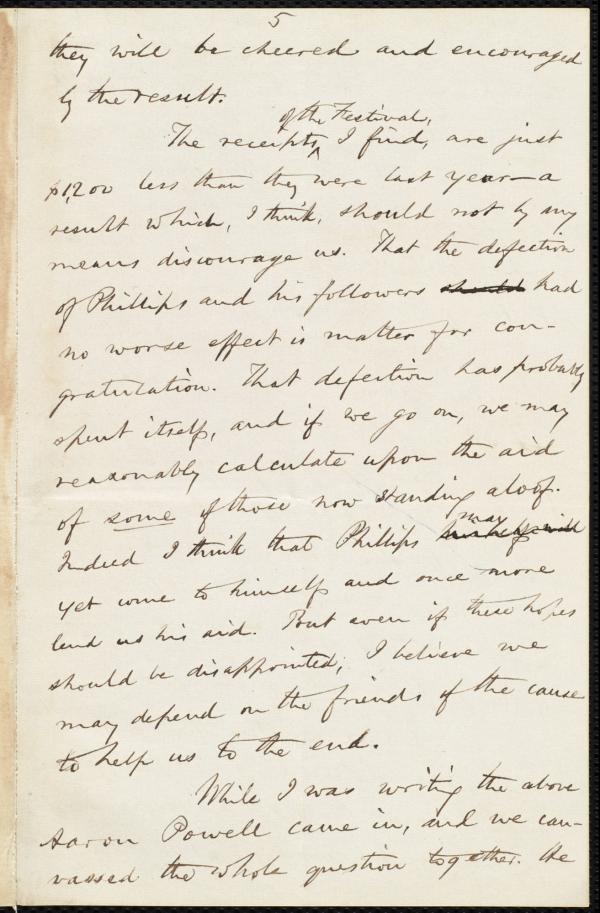 5
they will be cheered and encouraged
by the result.
of the Festival,
The receipts ^ I find, are just
$1,200 less than they were last year—a
result which, I think, should not by any
means discourage us. That the defection
of Phillips and his followers should had
no worse effect is matter for con-
gratulation. That defection has probably
spent itself, and if we go on, we may
reasonably calculate upon the aid
of some of those now standing aloof.
may
Indeed I think that Phillips
yet come to himself and once more
lend us his aid. But even if these hopes
should be disappointed, I believe we
may depend on the friends of the cause
to help us to the end.
While I was writing the above
Aaron Powell came in, and we can-
vassed the whole question together. He